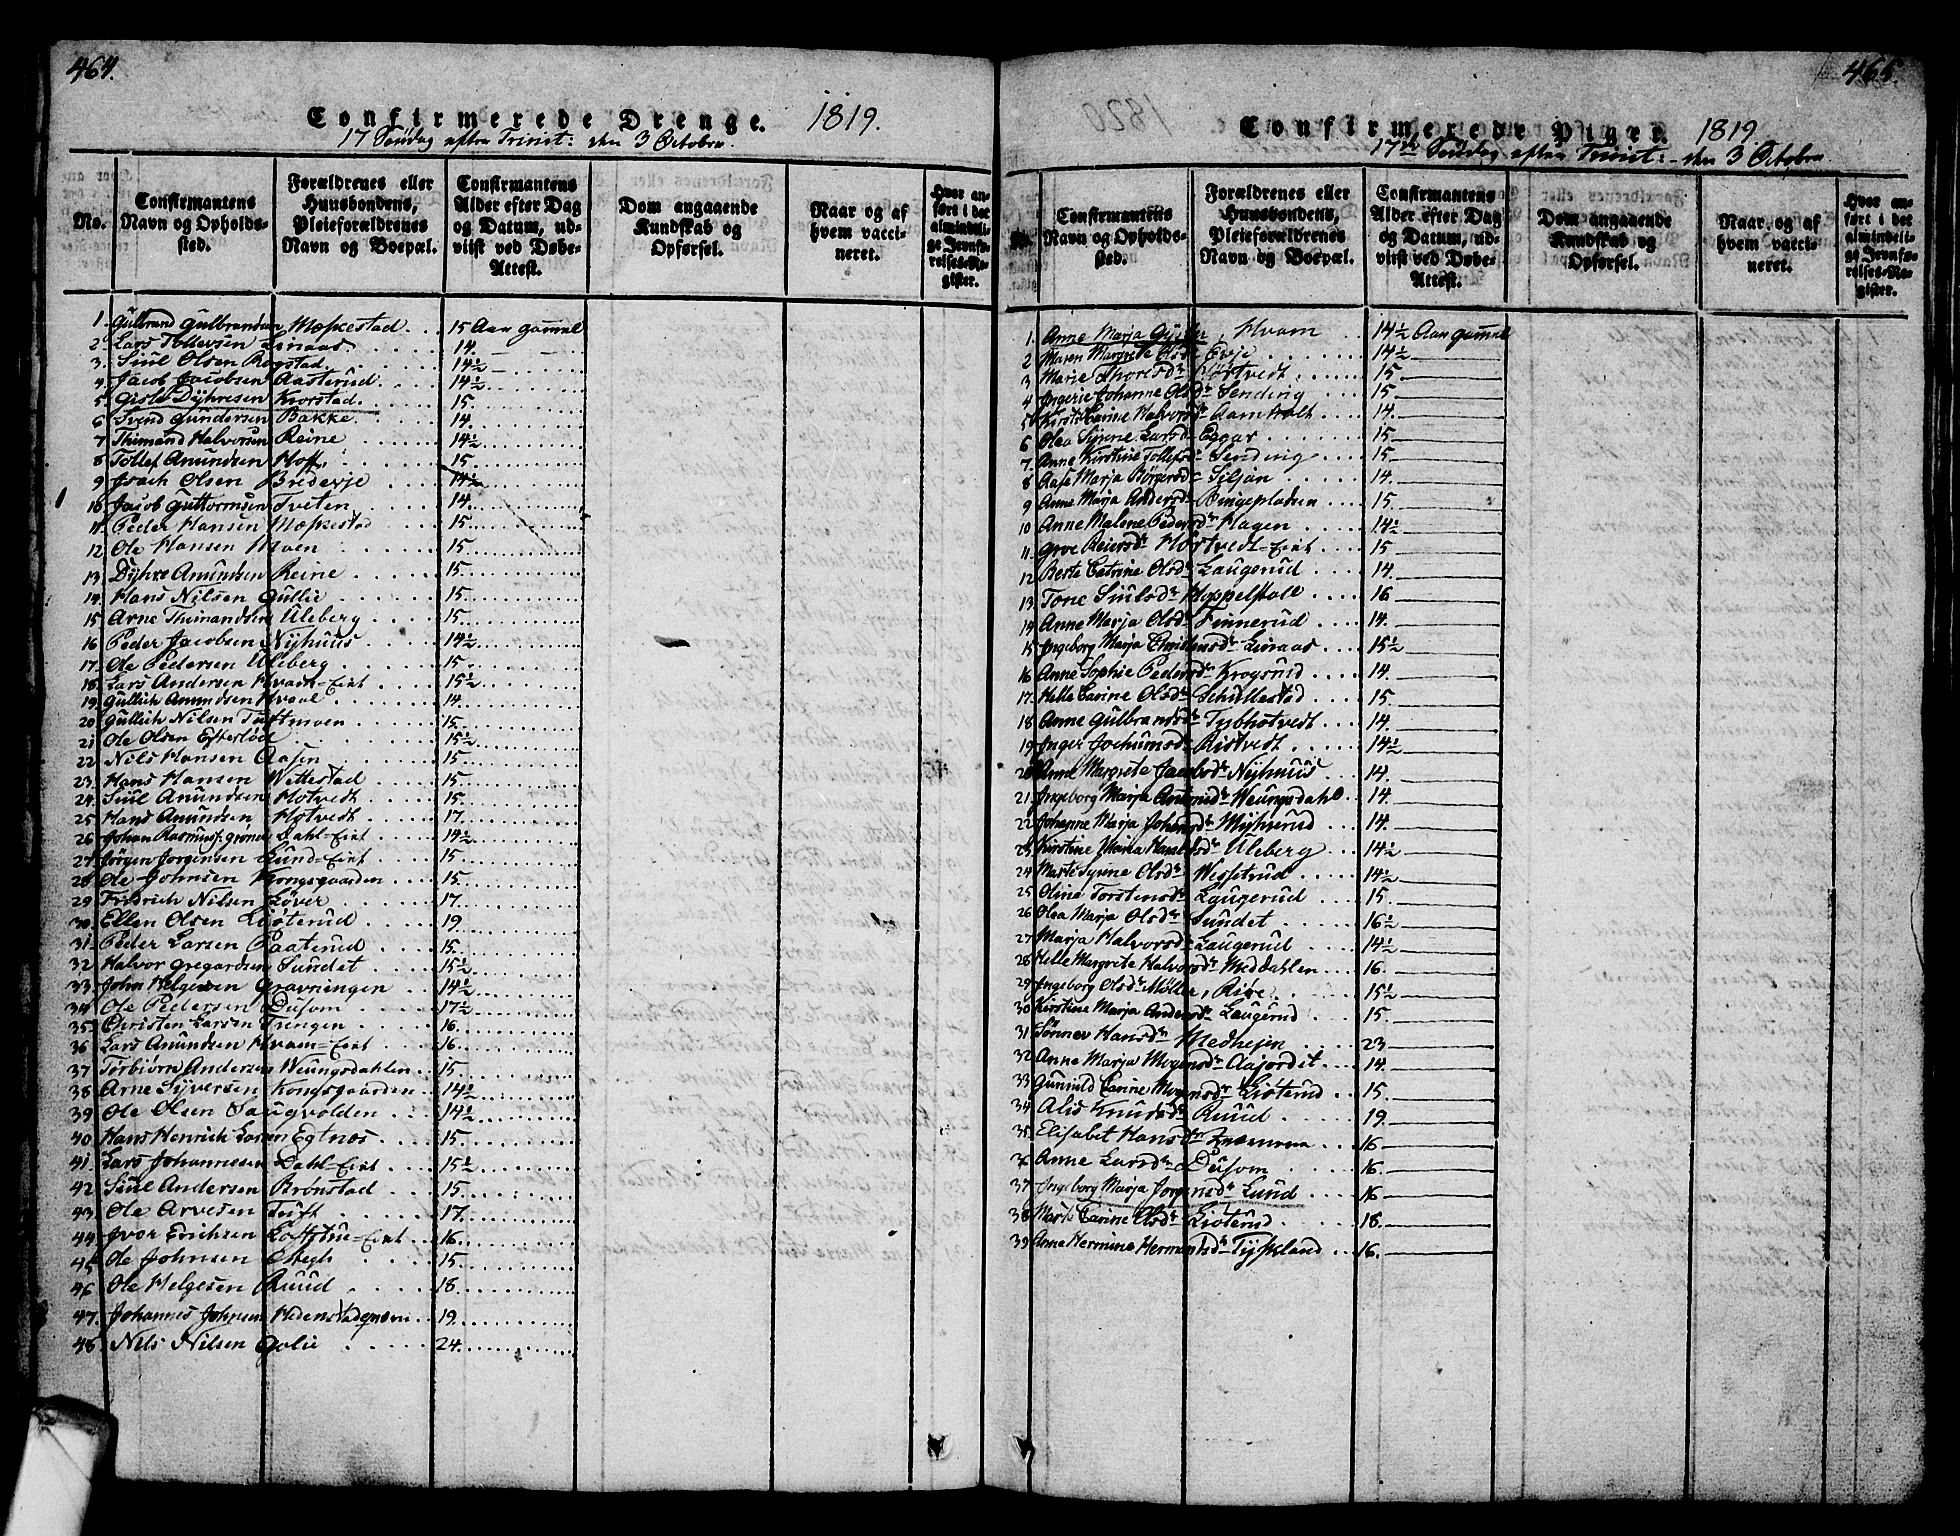 464.
Confirmerede Drenge. 1819.
17 Søndag efter Trinit: den 3 Octobr.
No.
Confirmantens Navn og Opholds-sted.
Forældrenes eller Huusbondens, Pleieforældrenes Navn og Boepæl.
Confirmantens Alder efter Dag og Datum, ud-viist ved Døbe-Attest.
Dom angaaende Kundskab og Opførsel.
Naar og af hvem vacci-neret.
Hvor an-ført i det almindeli-ge Jevnfø-relses-Re-gister.
1. Gulbrand Gulbrandsen Mæhestad. 15 Aar gamel
2 Lars Tollevsen Linaas. 14.
3. Siul Olsen Rogstad. 14½
4 Jacob Jacobsen Aasterud. 14½
5. Gisle Dyhresen Korstad. 15.
6 Svend Gundersen Bakke. 14.
7 Thimand Halvorsen Reine 14½
8 Tollef Amundsen Hoff. 15.
9 Joach Olsen Bredevje 14½
10 Jacob Guttormsen Tveten 14.
11. Peder Hansen Mæhestad 15.
12 Ole Hansen Moen 15.
13. Dyhre Amundsen Reine 15.
14. Hans Nilsen Gullie 15.
15 Arne Thimandsen Uleberg 15.
16 Peder Jacobsen Nyhuus 14½
17. Ole Pedersen Uleberg 15.
18. Lars Andersen Hvam-Eiet 15½
19. Gullich Amundsen Hvaal 14.
20 Gullich Nilsen Tuftmoen 15.
21 Ole Olsen Efterløt 15½
22 Nils Hansen Aasen 15.
23. Hans Hansen Wettestad 15.
24. Siul Amundsen Hotvedt 15.
25 Hans Amundsen Hotvedt 17.
26 Johan Rasmuss. Dahl-Eiet 14½
27 Jørgen Jorgensen Lund-Eiet 15.
28 Ole Johnsen Kongsgaarden 15.
29 Fredrich Nilsen Løver 17.
30. Ellen Olsen Liøterud 19.
31. Peder Larsen Paaterud 15.
32 Halvor Gregardsen Sundet 15½
33. John Helgesen Gravningen 14½
34 Ole Pedersen Dusom 17½
35. Christen Larsen Trengen 16.
36 Lars Amundsen Hvam-Eiet 16.
37 Torbiørn Andersen Weungsdahlen 15.
38 Arne Syversen Kongsgaarden 14½
39 Ole Olsen Saugvolden 14½
40 Hans Henrich Larsen Egtnæs 15.
41. Lars Johannesen Dahl-Eiet 15½
42. Siul Andersen Brønstad 15.
43. Ole Arvesen Tuft 17.
44 Iver Erichsen Loftstue-Eiet 16.
45 Ole Johnsen Stegh 15.
46 Ole Helgesen Ruud 18.
47. Johannes Johnsen 19.
48 Nils Nilsen Golie 24.
465.
Confirmerede Piger. 1819
17de Søndag efter Trinit: den 3 Octobr
No.
Confirmantens Navn og Opholds-sted.
Forældrenes eller Huusbondens, Pleieforældrenes Navn og Boepæl.
Confirmantens Alder efter Dag og Datum, ud-viist ved Døbe-Attest.
Dom angaaende Kundskab og Opførsel.
Naar og af hvem vacci-neret.
Hvor an-ført i det almindeli-ge Jevnfø-relses-Re-gister.
1. Anne Marja Hvam 14½ Aar gamel
2 Maren Margrete Olsdr Evje 14½
3 Marie Thorsdr Hørtvedt 15
4 Ingerie Johanne Olsdr Sending 15
5 Kirsti Carine Halvorsdr Aamholt 14.
6 Olea Syrene Larsdr Eggar 15.
7. Anne Kirstine Tollefsdr Sending 15.
8 Aase Marja Børgersdr Siljan 14.
9 Anne Marja Andersdr Bingepladsen 15.
10 Anne Malene Pedersdr Hagen 14½
11. Groe Reiersdr Hørtvedt-Eiet 15.
12 Berte Catrine Olsdr Laugerud 14.
13. Tone Siulsdr Hoppelstole 16
14 Anne Marja Olsdr Finnerud 14.
15 Ingeborg Marja Christensdr Linaas 15½
16 Anne Sophie Pedersdr Krogsrud 14.
17. Helle Carine Olsdr Schullestad 15.
18 Anne Gulbransdr Tybhotvedt 14.
19 Inger Jochumsdr Ristvedt 14½
20 Anne Margrete Jacobsdr Nyhuus 14.
21. Ingeborg Marja Weungsdahl 14.
22 Johanne Marja Johansdr Myhrerud 14.
23. Kirstine Maria Haraldsdr Uleberg 14½
24 Marte Synne Olsdr Wessetrud 14½
25 Oline Torstensdr Laugerud 15.
26 Olea Marja Olsdr Sundet 16½
27 Marja Halvorsdr Laugerud 14½
28 Helle Margrete Halvorsdr Meddahlen 16.
29 Ingeborg Olsdr Møller, Riise 15½
30 Kirstine Marja Andersdr Laugerud 15.
31 Sønnev Hansdr Medhejen 23
32 Anne Marja Mogensdr Aajordet 14.
33 Gunnild Carine Mogensdr Liøterud 15.
34 Alis Knudsdr Ruud 19.
35. Elisabet Hansdr 16
36 Anne Larsdr Dusom 16.
37. Ingeborg Marja Jorgensdr Lund 16
38 Marte Carine Olsdr Liøterud 18.
39. Anne Hermine Hermansdr Tyskland 16.